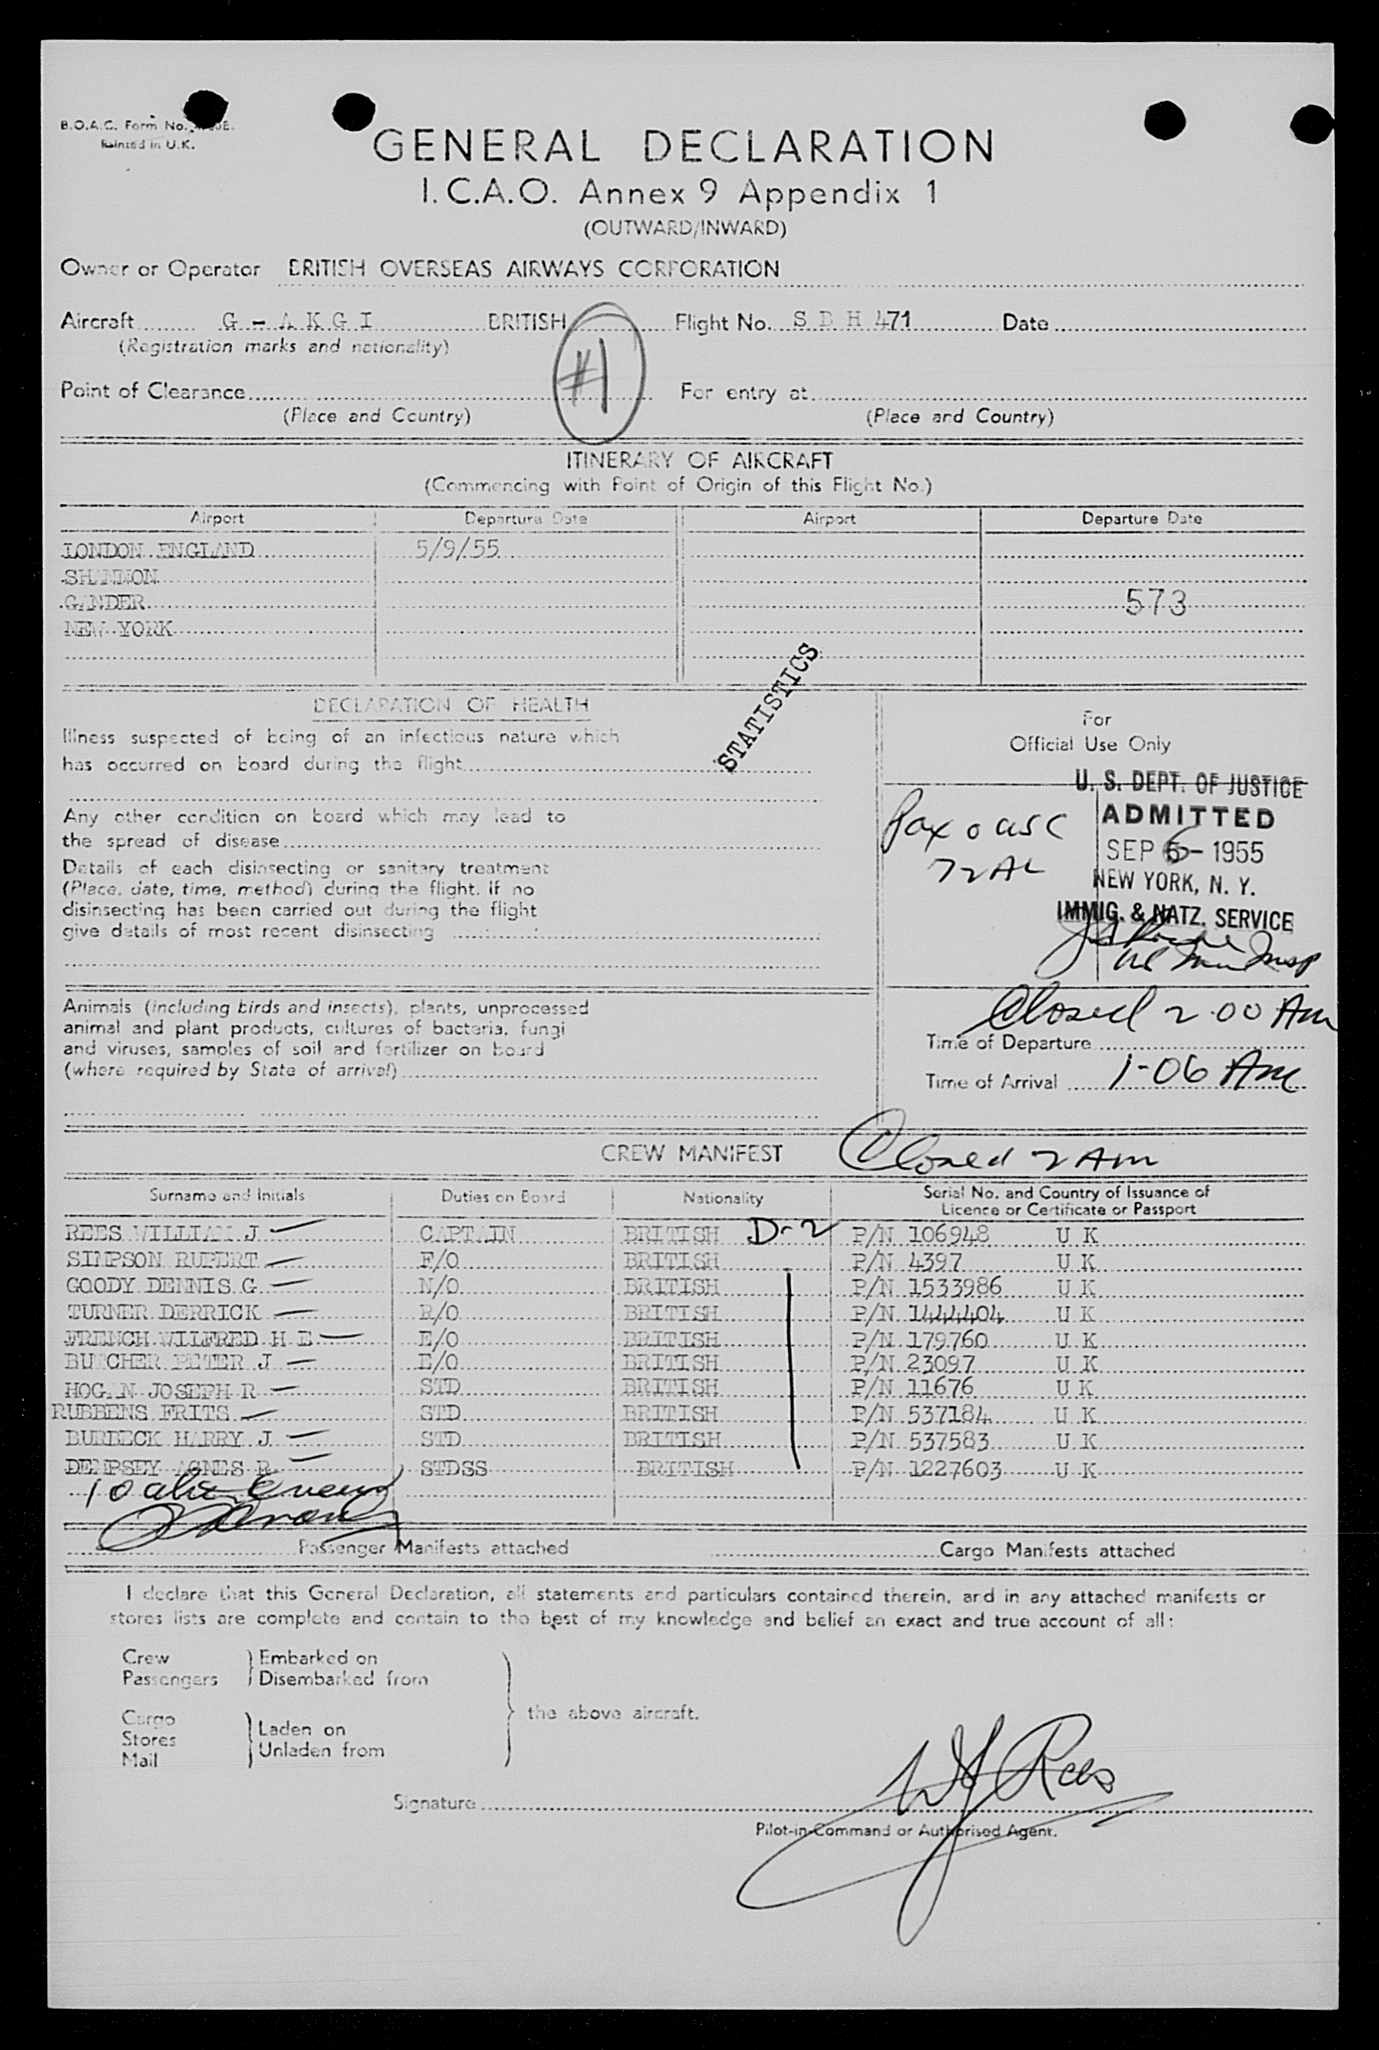 B.O.A.C. Form No.
Printed in U.K.
GENERAL DECLARATION
I.C.A.O. Annex 9 Appendix 1
(OUTWARD/INWARD)
Owner or Operator BRITISH OVERSEAS AIRWAYS CORPORATION
Aircraft G - A K G I BRITISH Flight No. S D H 471 Date
(Registration marks and nationality)
#1
Point of Clearance For entry at
(Place and Country) (Place and Country)
ITINERARY OF AIRCRAFT
(Commencing with Point of Origin of this Flight No.)
Airport Departure Date Airport Departure Date
LONDON ENGLAND 5/9/55
SHANNON
GANDER 573
NEW YORK
STATISTICS
DECLARATION OF HEALTH
Illness suspected of being of an infectious nature which
has occurred on board during the flight
Any other condition on board which may lead to
the spread of disease
Details of each disinsecting or sanitary treatment
(Place, date, time, method) during the flight. If no
disinsecting has been carried out during the flight
give details of most recent disinsecting
Animals (including birds and insects), plants, unprocessed
animal and plant products, cultures of bacteria, fungi
and viruses, samples of soil and fertilizer on board
(where required by State of arrival)
For
Official Use Only
U. S. DEPT. OF JUSTICE
ADMITTED
SEP 6 - 1955
NEW YORK, N. Y.
IMMIG. & NATZ. SERVICE
Pax 0 USC
72 AL
Closed 2.00 Am
Time of Departure
Time of Arrival 1-06 Am
CREW MANIFEST Closed 2 Am
Surname and Initials Duties on Board Nationality Serial No. and Country of Issuance of
Licence or Certificate or Passport
REES WILLIAM J CAPTAIN BRITISH D-2 P/N 106948 U K
SIMPSON RUPERT F/O BRITISH P/N 4397 U K
GOODY DENNIS G N/O BRITISH P/N 1533986 U K
TURNER DERRICK R/O BRITISH P/N 1444404 U K
FRENCH WILFRED H E E/O BRITISH P/N 179760 U K
BUTCHER PETER J E/O BRITISH P/N 23097 U K
HOGAN JOSEPH R STD BRITISH P/N 11676 U K
RUBBENS FRITS STD BRITISH P/N 537184 U K
BURBECK HARRY J STD BRITISH P/N 537583 U K
DEMPSEY AGNES R STDSS BRITISH P/N 1227603 U K
10 alien crew
Passenger Manifests attached Cargo Manifests attached
I declare that this General Declaration, all statements and particulars contained therein, and in any attached manifests or
stores lists are complete and contain to the best of my knowledge and belief an exact and true account of all:
Crew Embarked on
Passengers Disembarked from
the above aircraft.
Cargo
Stores Laden on
Mail Unladen from
Signature WJ Rees
Pilot-in-Command or Authorised Agent.